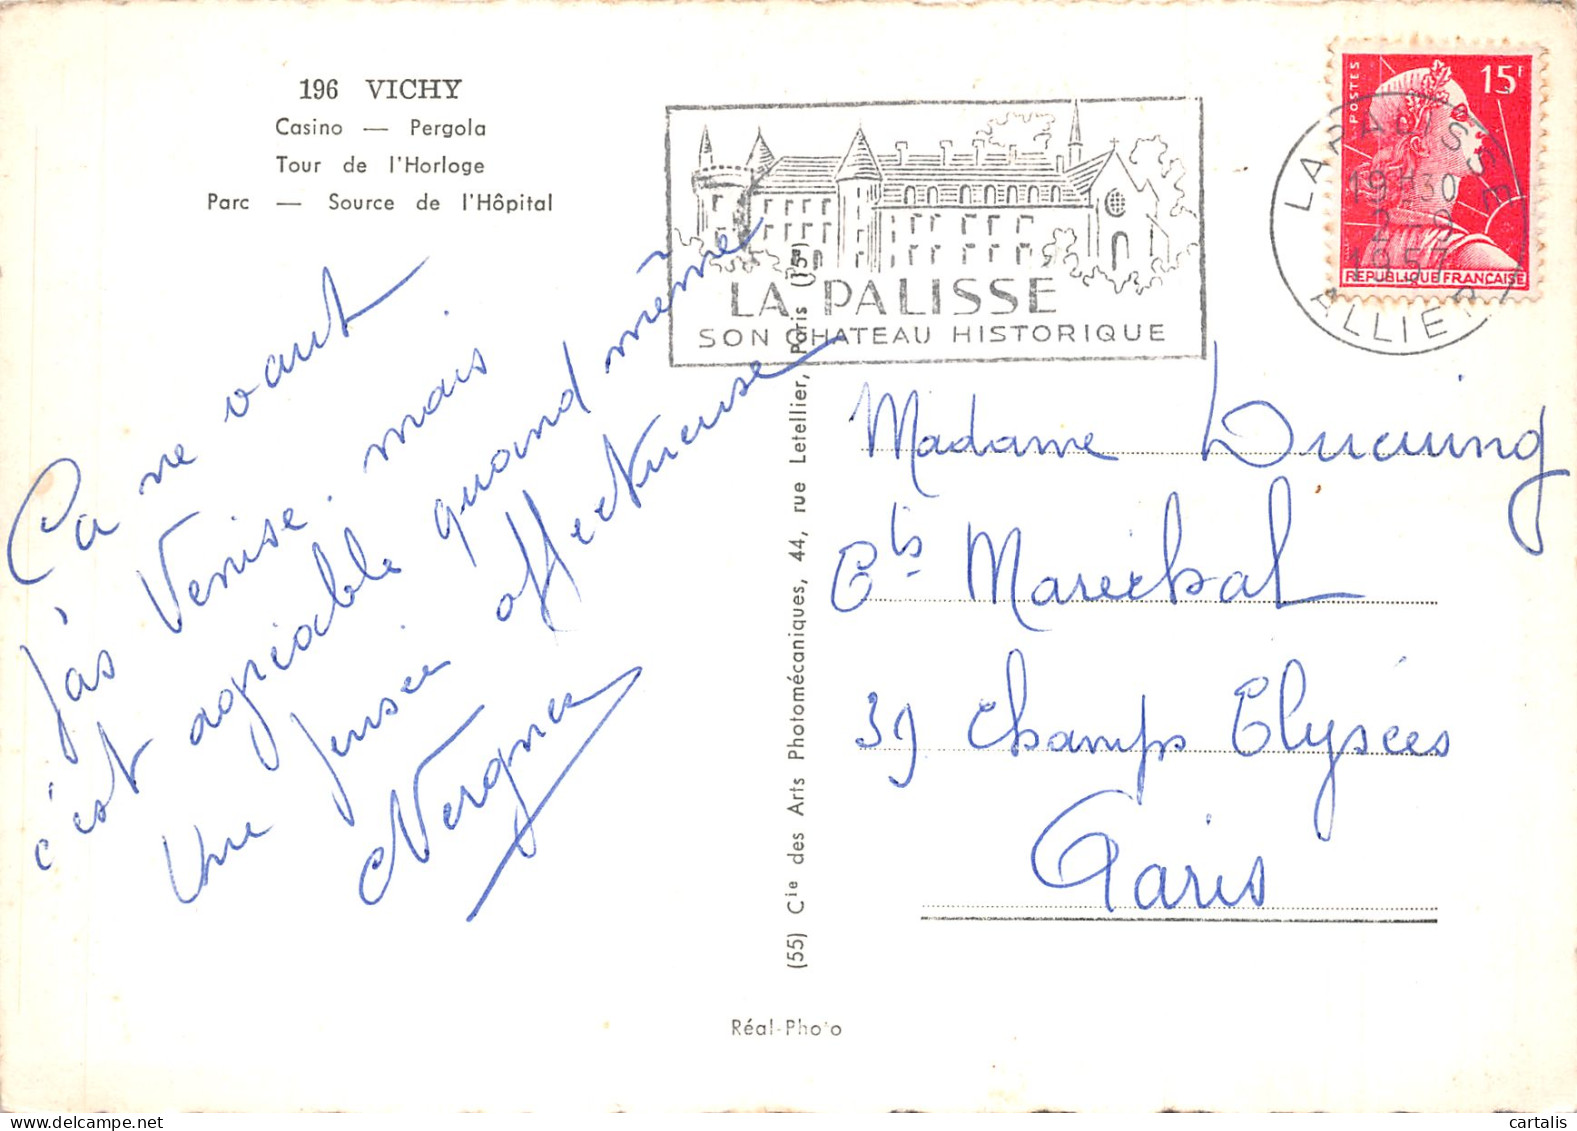 196 VICHY
Casino — Pergola
Tour de l'Horloge
Parc — Source de l'Hôpital
LA PALISSE
SON CHATEAU HISTORIQUE
POSTES
15F
REPUBLIQUE FRANÇAISE
LAPALISSE
19H30
2-9
1957
ALLIER
Ça ne vaut
pas Venise. mais
c'est agréable quand même
Une pensée affectueuse
Vergnes
(55) Cie des Arts Photomécaniques, 44, rue Letellier, Paris (15e)
Madame Ducuing
Cts Maréchal
39 Champs Elysées
Paris
Réal-Photo
cartalis